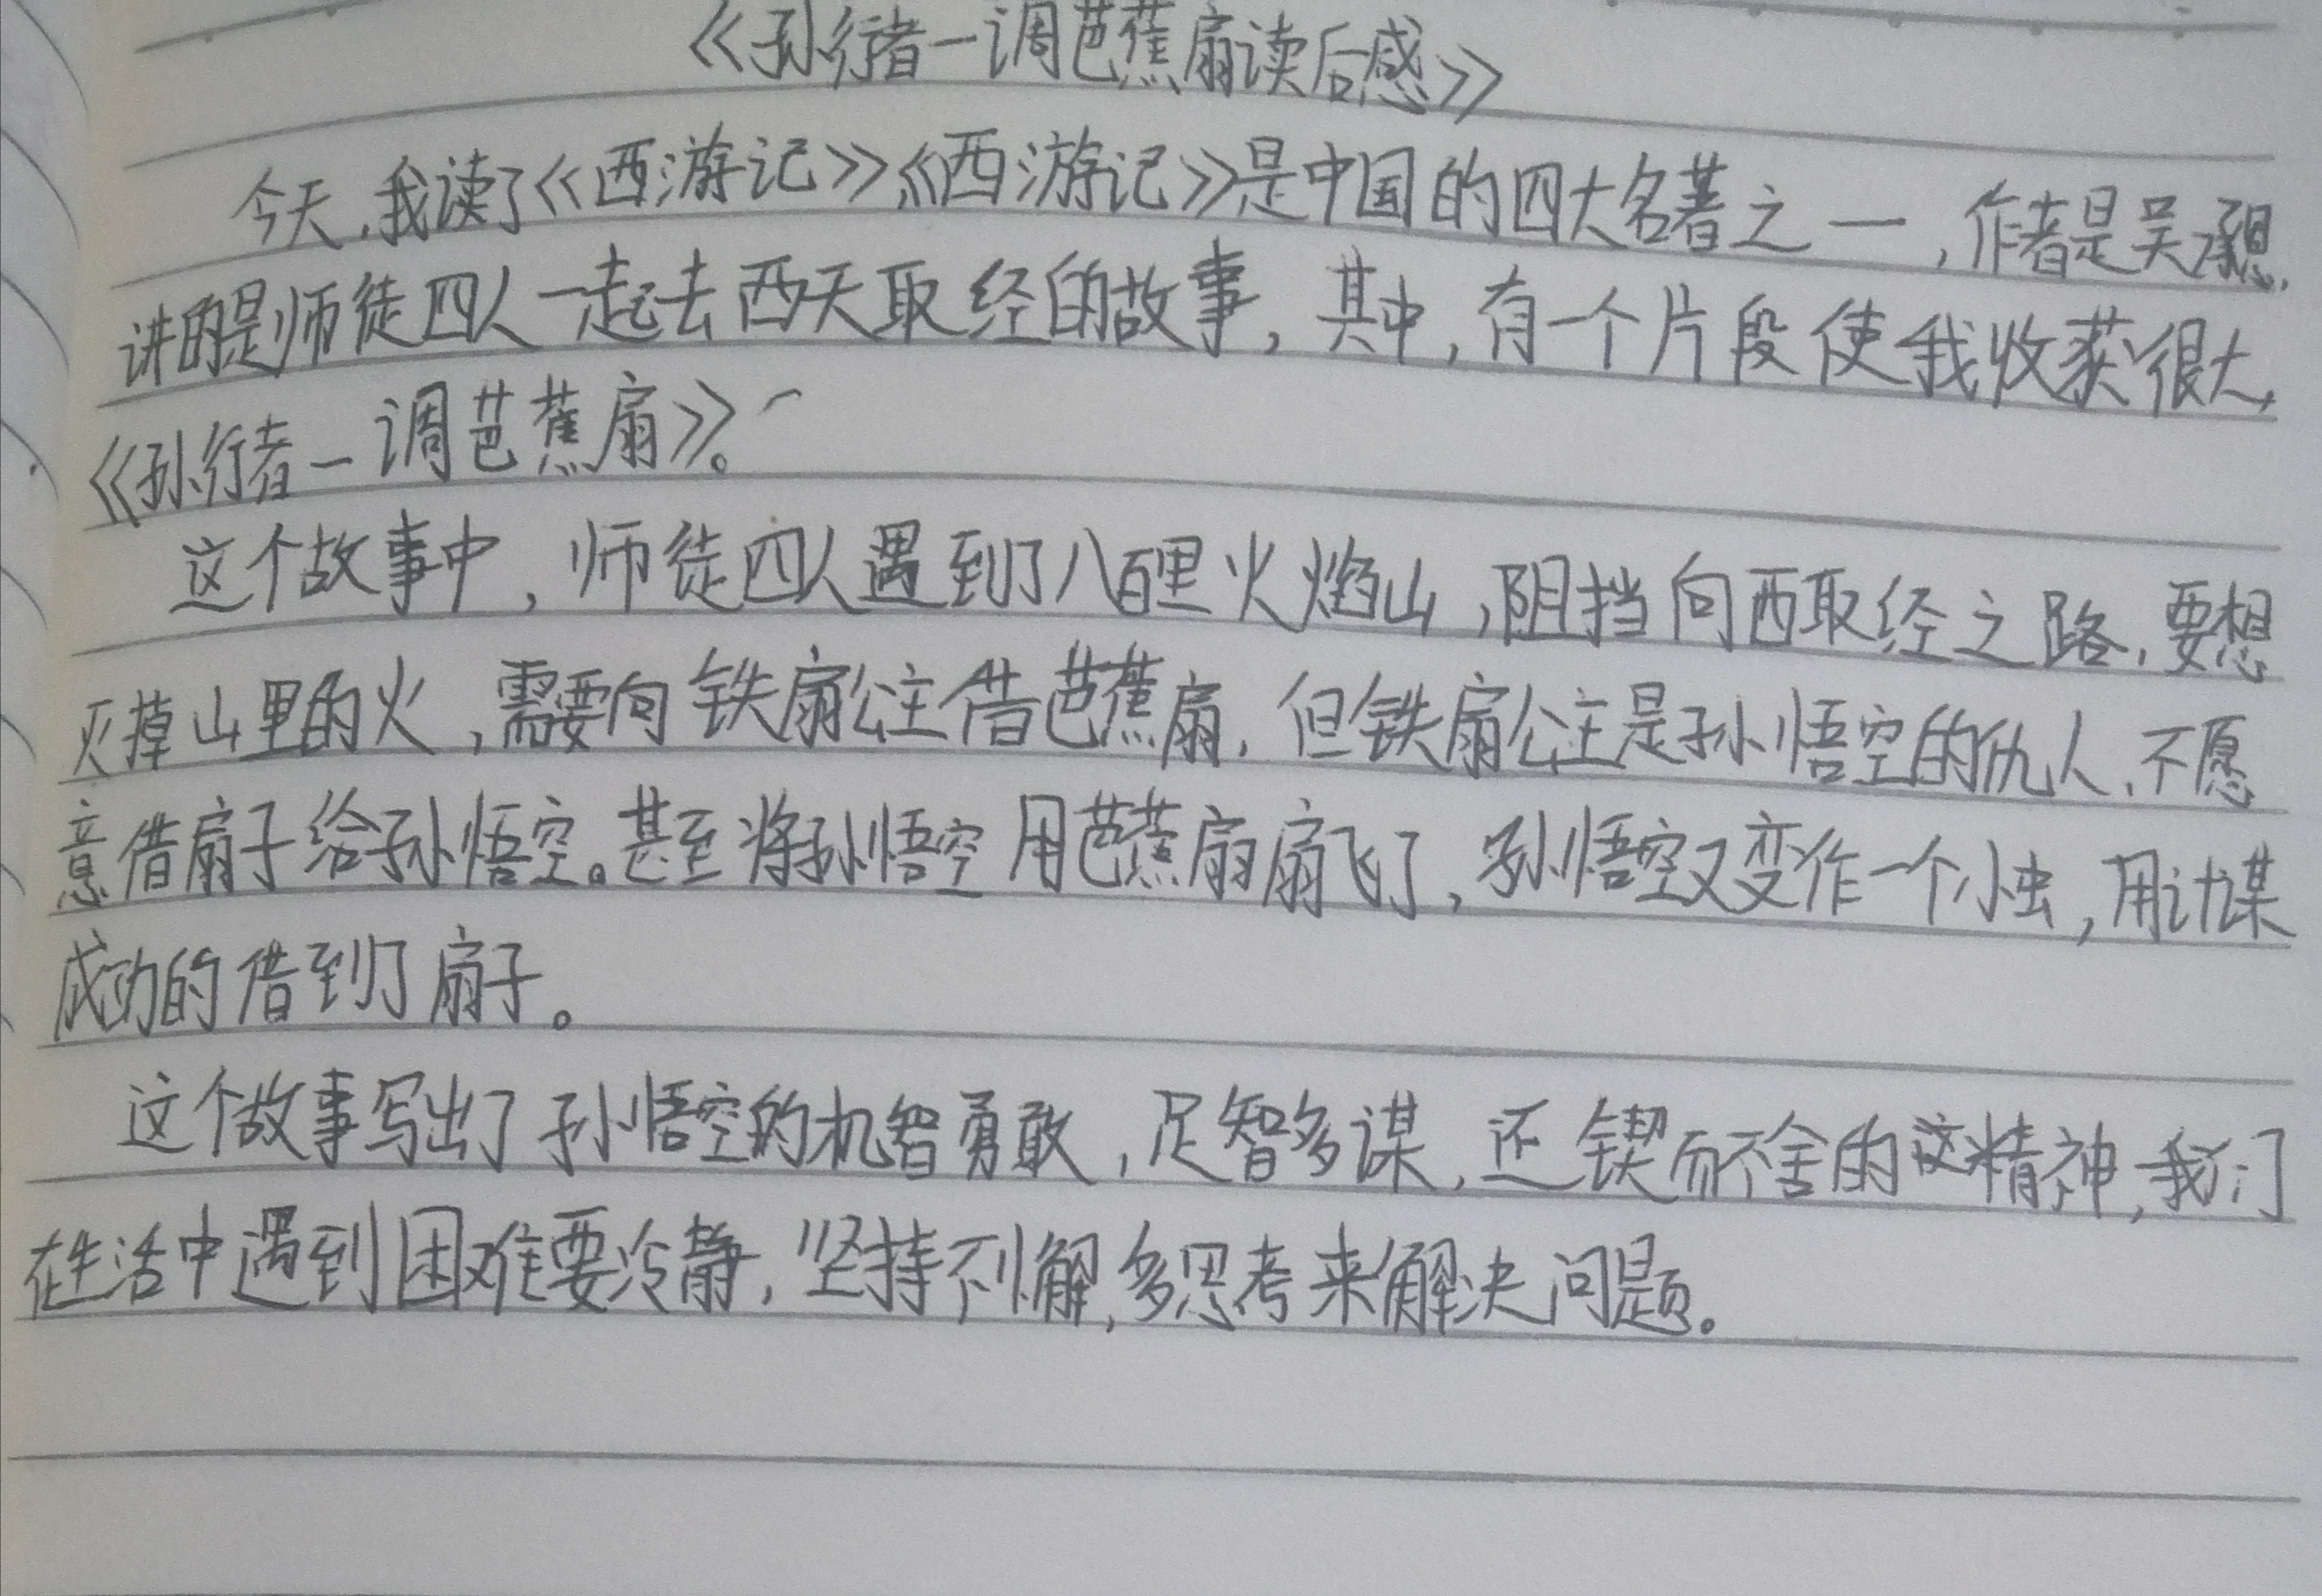 《孙行者一调芭蕉扇读后感》
今天,我读了《西游记》《西游记》是中国的四大名著之一,作者是吴承恩,
讲的是师徒四人一起去西天取经的故事,其中,有一个片段使我收获很大,
《孙行者一调芭蕉扇》。
这个故事中,师徒四人遇到了八百里火焰山,阻挡向西取经之路,要想
灭掉山里的火,需要向铁扇公主借芭蕉扇,但铁扇公主是孙悟空的仇人,不愿
意借扇子给孙悟空。甚至将孙悟空用芭蕉扇扇飞了,孙悟空又变作一个小虫,用计谋
成功的借到了扇子。
这个故事写出了孙悟空的机智勇敢,足智多谋,还锲而不舍的这精神,我们
在生活中遇到困难要冷静,坚持不懈,多思考来解决问题。